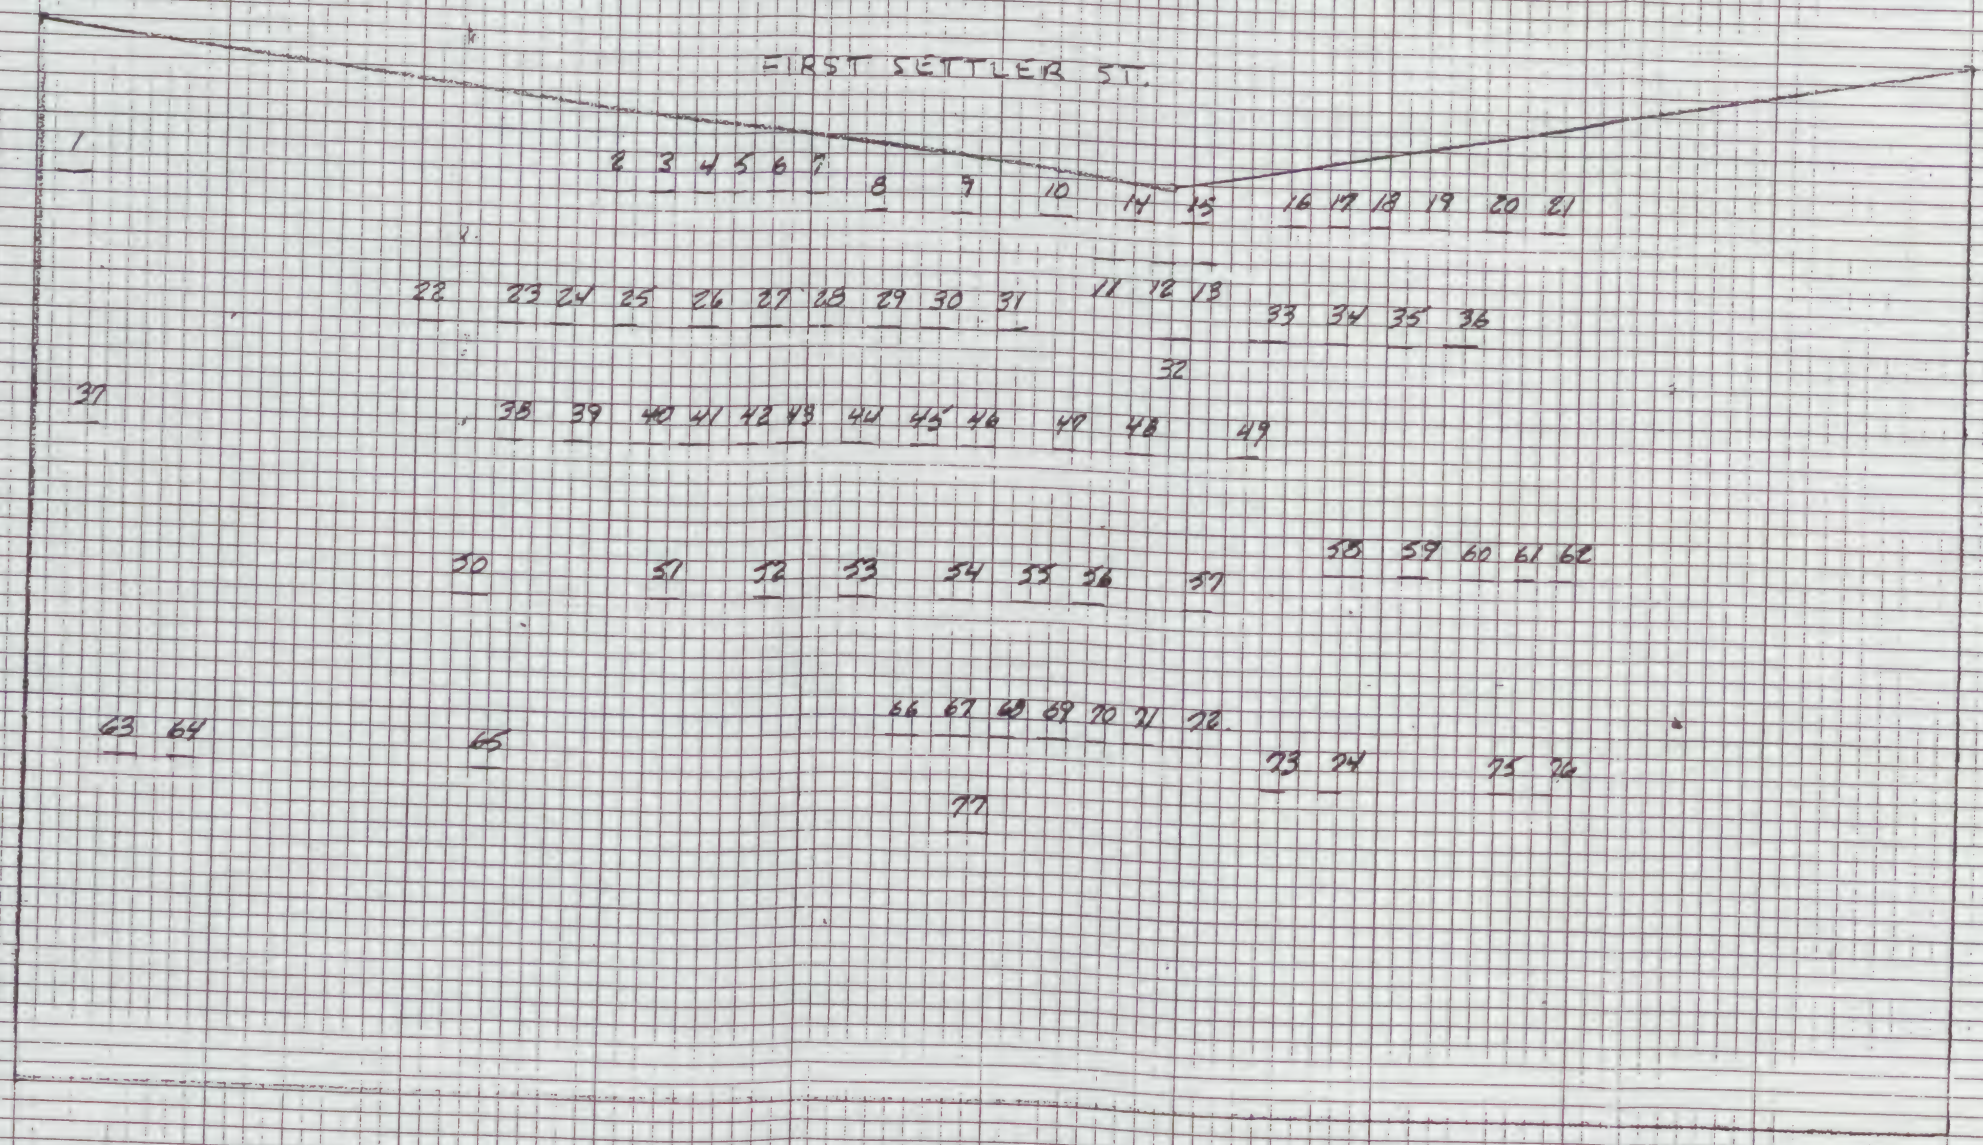 FIRST SETTLER ST.
1 2 3 4 5 6 7
8 9 10 14 15 16 17 18 19 20 21
22 23 24 25 26 27 28 29 30 31 11 12 13
33 34 35 36
32
37 38 39 40 41 42 43 44 45 46 47 48 49
50 51 52 53 54 55 56 57 58 59 60 61 62
63 64 65 66 67 68 69 70 71 72
73 74 75 76
77